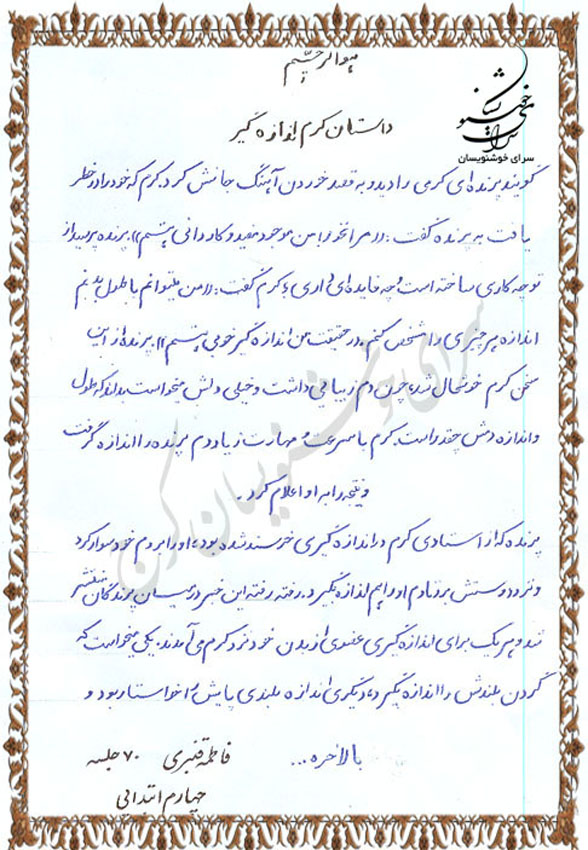 هوالرحیم
سرای خوشنویسان
داستان کرم اندازه گیر
گویند پرنده‌ای کرمی را دید و به قصد خوردن آهنگ جانش کرد. کرم که خود را در خطر
یافت به پرنده گفت: «مرا نخور! من موجود مفید و کاردانی هستم» پرنده پرسید از
تو چه کاری ساخته است و چه فایده‌ای داری؟ کرم گفت: «من می‌توانم با طول بدنم
اندازه هر چیزی را مشخص کنم. در حقیقت من اندازه گیر خوبی هستم». پرنده از این
سخن کرم خوشحال شد، چون دم زیبایی داشت و خیلی دلش میخواست بداند که طول
و اندازه دمش چقدر است. کرم با سرعت و مهارت زیاد دم پرنده را اندازه گرفت
و نتیجه را به او اعلام کرد.
پرنده که از استادی کرم در اندازه گیری خرسند شده بود، او را بر دم خود سوار کرد
و نزد دوستش برد تا دم او را هم اندازه بگیرد. رفته رفته این خبر در میان پرندگان منتشر
شد و هر یک برای اندازه گیری عضوی از بدن خود نزد کرم می‌آمدند. یکی میخواست که
گردن بلندش را اندازه بگیرد، دیگری اندازه بلندی پایش را خواستار بود و
بالاخره ...
فاطمه قنبری ۷۰ جلسه
چهارم ابتدایی
سرای خوشنویسان